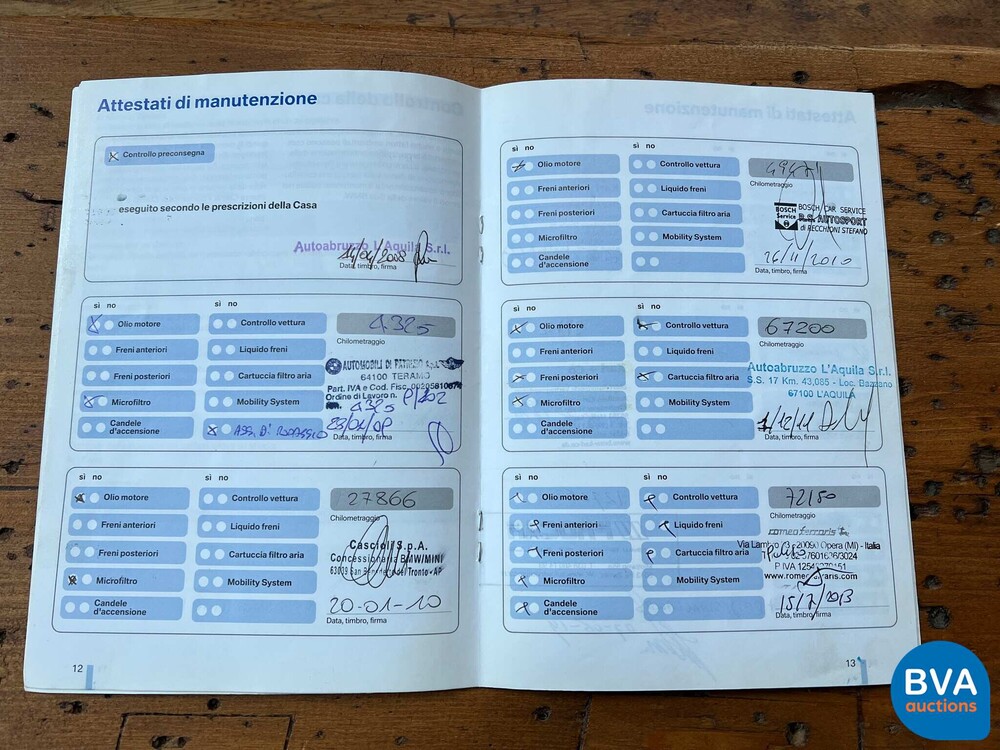 Attestati di manutenzione
Controllo preconsegna
eseguito secondo le prescrizioni della Casa
Autoabruzzo L'Aquila S.r.l.
14/04/2008
Data, timbro, firma
sì no
sì no
Olio motore
Controllo vettura
4325
Chilometraggio
Freni anteriori
Liquido freni
Freni posteriori
Cartuccia filtro aria
AUTOMOBILI DI
64100 TERAMO
Part. IVA e Cod. Fisc.
Ordine di Lavoro n.
4325
Microfiltro
Mobility System
Candele
d'accensione
Data, timbro, firma
sì no
sì no
Olio motore
Controllo vettura
27866
Chilometraggio
Freni anteriori
Liquido freni
Freni posteriori
Cartuccia filtro aria
Cascioli S.p.A.
Concessionaria BMW/MINI
Microfiltro
Mobility System
Candele
d'accensione
20-01-10
Data, timbro, firma
12
sì no
sì no
Olio motore
Controllo vettura
Chilometraggio
Freni anteriori
Liquido freni
Freni posteriori
Cartuccia filtro aria
BOSCH
Service
BOSCH CAR SERVICE
R.S. AUTOSPORT
di RECCHIONI STEFANO
Microfiltro
Mobility System
Candele
d'accensione
26/11/2010
Data, timbro, firma
sì no
sì no
Olio motore
Controllo vettura
67200
Chilometraggio
Freni anteriori
Liquido freni
Freni posteriori
Cartuccia filtro aria
Autoabruzzo L'Aquila S.r.l.
S.S. 17 Km. 43,085 - Loc. Bazzano
67100 L'AQUILA
Microfiltro
Mobility System
Candele
d'accensione
1/12/11
Data, timbro, firma
sì no
sì no
Olio motore
Controllo vettura
72150
Chilometraggio
Freni anteriori
Liquido freni
romeo ferraris
Freni posteriori
Cartuccia filtro aria
Opera (MI) - Italia
Microfiltro
Mobility System
Candele
d'accensione
15/7/2013
Data, timbro, firma
13
BVA
auctions